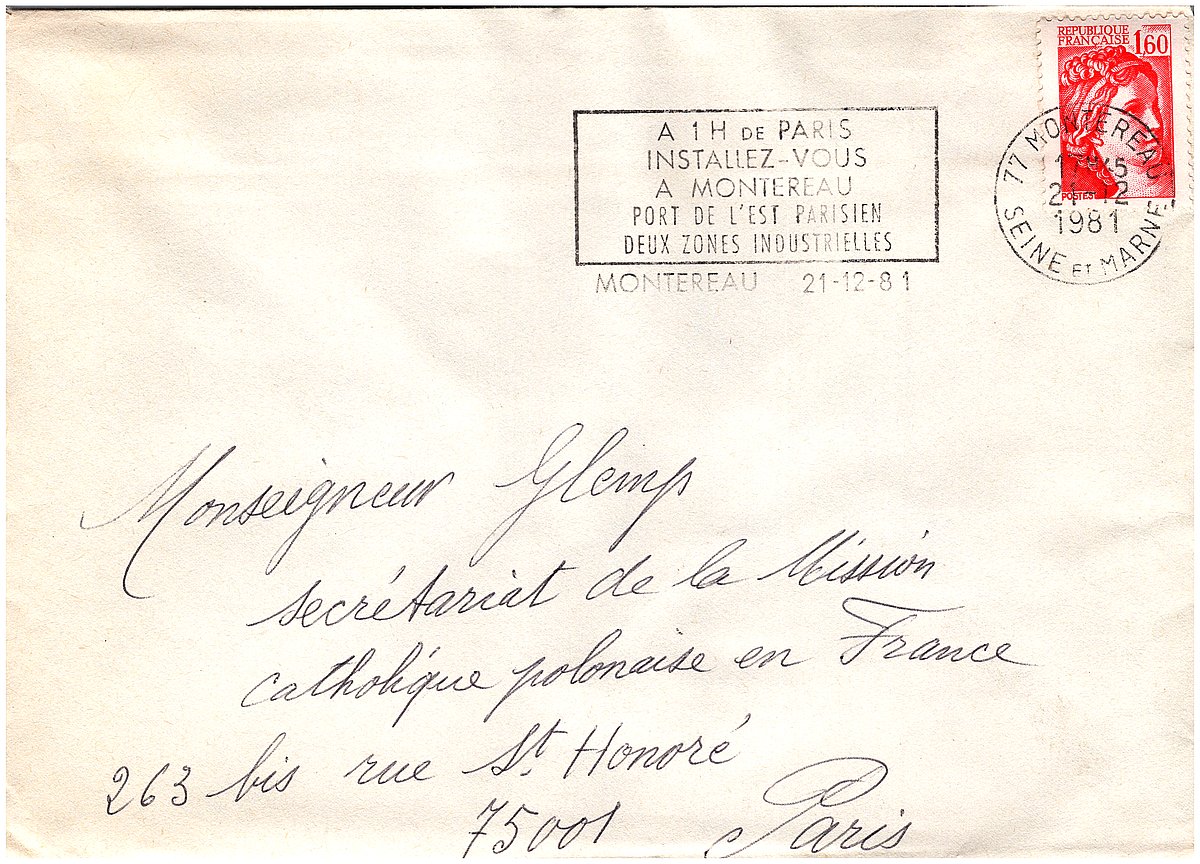 REPUBLIQUE
FRANÇAISE 1,60
POSTES
A 1H DE PARIS
INSTALLEZ-VOUS
A MONTEREAU
PORT DE L'EST PARISIEN
DEUX ZONES INDUSTRIELLES
MONTEREAU 21-12-81
77 MONTEREAU
21-12
1981
SEINE ET MARNE
Monseigneur Glemp
secrétariat de la Mission
catholique polonaise en France
263 bis rue St. Honoré
75001 Paris